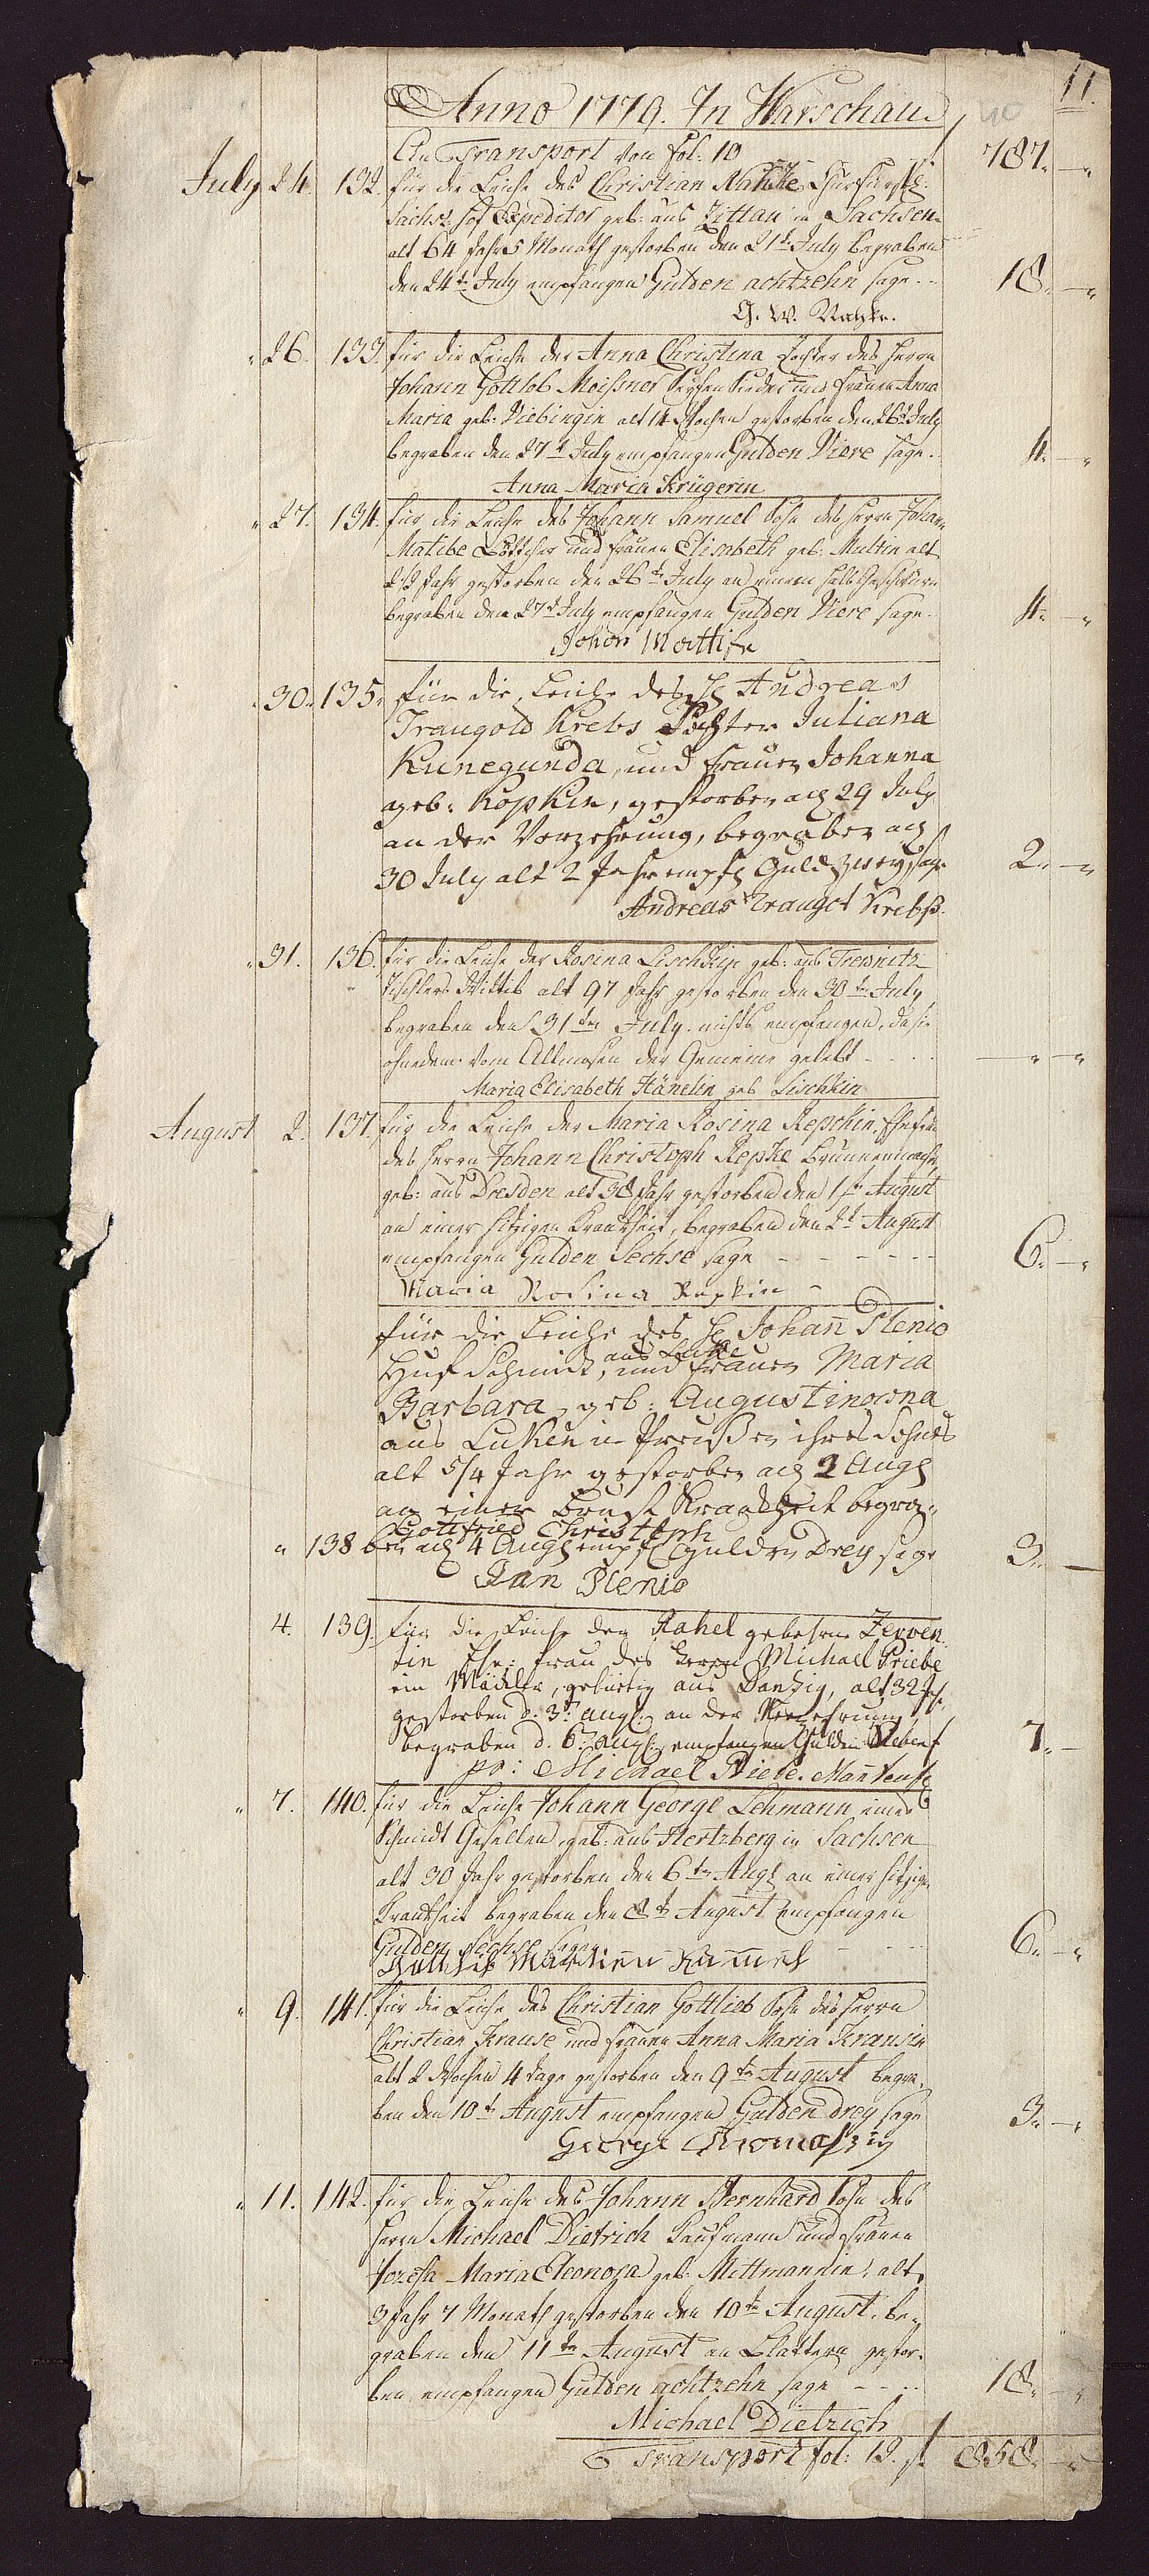 11.
Anno 1779. In Warschau
40
An Transport von fol: 10 787. -"
July 24. 132. für die Leiche des Christian Churfürstl:
Sächs: Hof Expeditor geb: aus Zittau in Sachsen
alt 64 Jahr 5 Monath gestorben den 21t July begraben
den 24t July empfangen Gulden achtzehn sage.. 18. -"
G. W.
" 26. 133. für die Leiche der Anna Christina Tochter des Herrn
Johann Gottlob Meissner und Frauen Anna
Maria geb: Viebingin alt 14 Wochen gestorben den 26t July
begraben den 27t July empfangen Gulden Viere sage. 4. -"
Anna Maria Krügerin
" 27. 134. für die Leiche des Johann Samuel Sohn des Herrn Johan
Matibe Böttcher und Frauen Elisabeth geb: Multin alt
2 1/2 Jahr gestorben den 26t July an einem Halß Geschwüre
begraben den 27t July empfangen Gulden Viere sage. 4. -"
Johan Mattibe
" 30. 135. für die Leiche des H Andreas
Traugold Krebs Tochter Juliana
Kunegunda, und Frauen Johanna
geb: Kopkin, gestorben den 29 July
an der Verzehrung, begraben den
30 July alt 2 Jahr empf Guld zwey sage 2. -"
Andreas Traugot Krebß.
" 31. 136. für die Leiche der Rosina Lischkin geb: aus Trebnitz
Tischlers Wittib alt 97 Jahr gestorben den 30ten July
begraben den 31ten July. nichts empfangen, da sie
ohnedem vom Allmosen der Gemeine gelebt - . . . -" -"
Maria Elisabeth Hänelin geb Lischkin
August 2. 137. für die Leiche der Maria Rosina Repchin. Ehefrau
des Herrn Johann Christoph Repke Brunnenmacher
geb: aus Dresden alt 38 Jahr gestorben den 1t August
an einer hitzigen Krankheit, begraben den 2t August
empfangen Gulden Sechse sage - - - - - - 6. -"
Maria Rosina Repkin -
für die Leiche des H Johan̄ Plenio
aus
Huf Schmidt, und Frauen Maria
Barbara, geb: Augustinowna
aus Luken in Preußen ihres Sohnes
alt 5/4 Jahr gestorben den 2 Aug
an einer Brust Krankheit begra-
Gottfried Christoph
" 138 ben den 4 Aug empf Gulden Drey sage 3. -
Jan Plenio
4. 139. für die Leiche der Rahel gebohrne Zerven
tin Ehe: Frau des Herrn Michael Priebe
ein Mäckler, gebürtig aus Danzig, alt 32 Jh.
gestorben d. 3t Aug. an der Verzehrung,
begraben d. 6t Aug. empfangen Gulden Sieben 7. -
Michael Priebe.
" 7. 140. für die Leiche Johann George Lehmann eines
Schmidt Gesellen, geb: aus Hertzberg in Sachsen
alt 30 Jahr gestorben den 6ten Aug an einer hitzigen
Krankheit begraben den 8t August empfangen
Gulden Sechse sage - - . . . 6. -"
" 9. 141. für die Leiche des Christian Gottlieb Sohn des Herrn
Christian Krause und Frauen Anna Maria Krausin
alt 2 Wochen 4 Tage gestorben den 9ten August begra-
ben den 10t August empfangen Gulden drey sage 3. -"
George
" 11. 142. für die Leiche des Johann Bernhard Sohn des
Herrn Michael Dietrich Kaufmann und Frauen
Jozefa Maria Eleonora geb: Mittmannin, alt
3 Jahr 7 Monath gestorben den 10ten August, be-
graben den 11ten August an Blattern gestor-
ben, empfangen Gulden achtzehn sage - - . . 18. -"
Michael Dietrich
Transport fol: 12. f. 858. -"